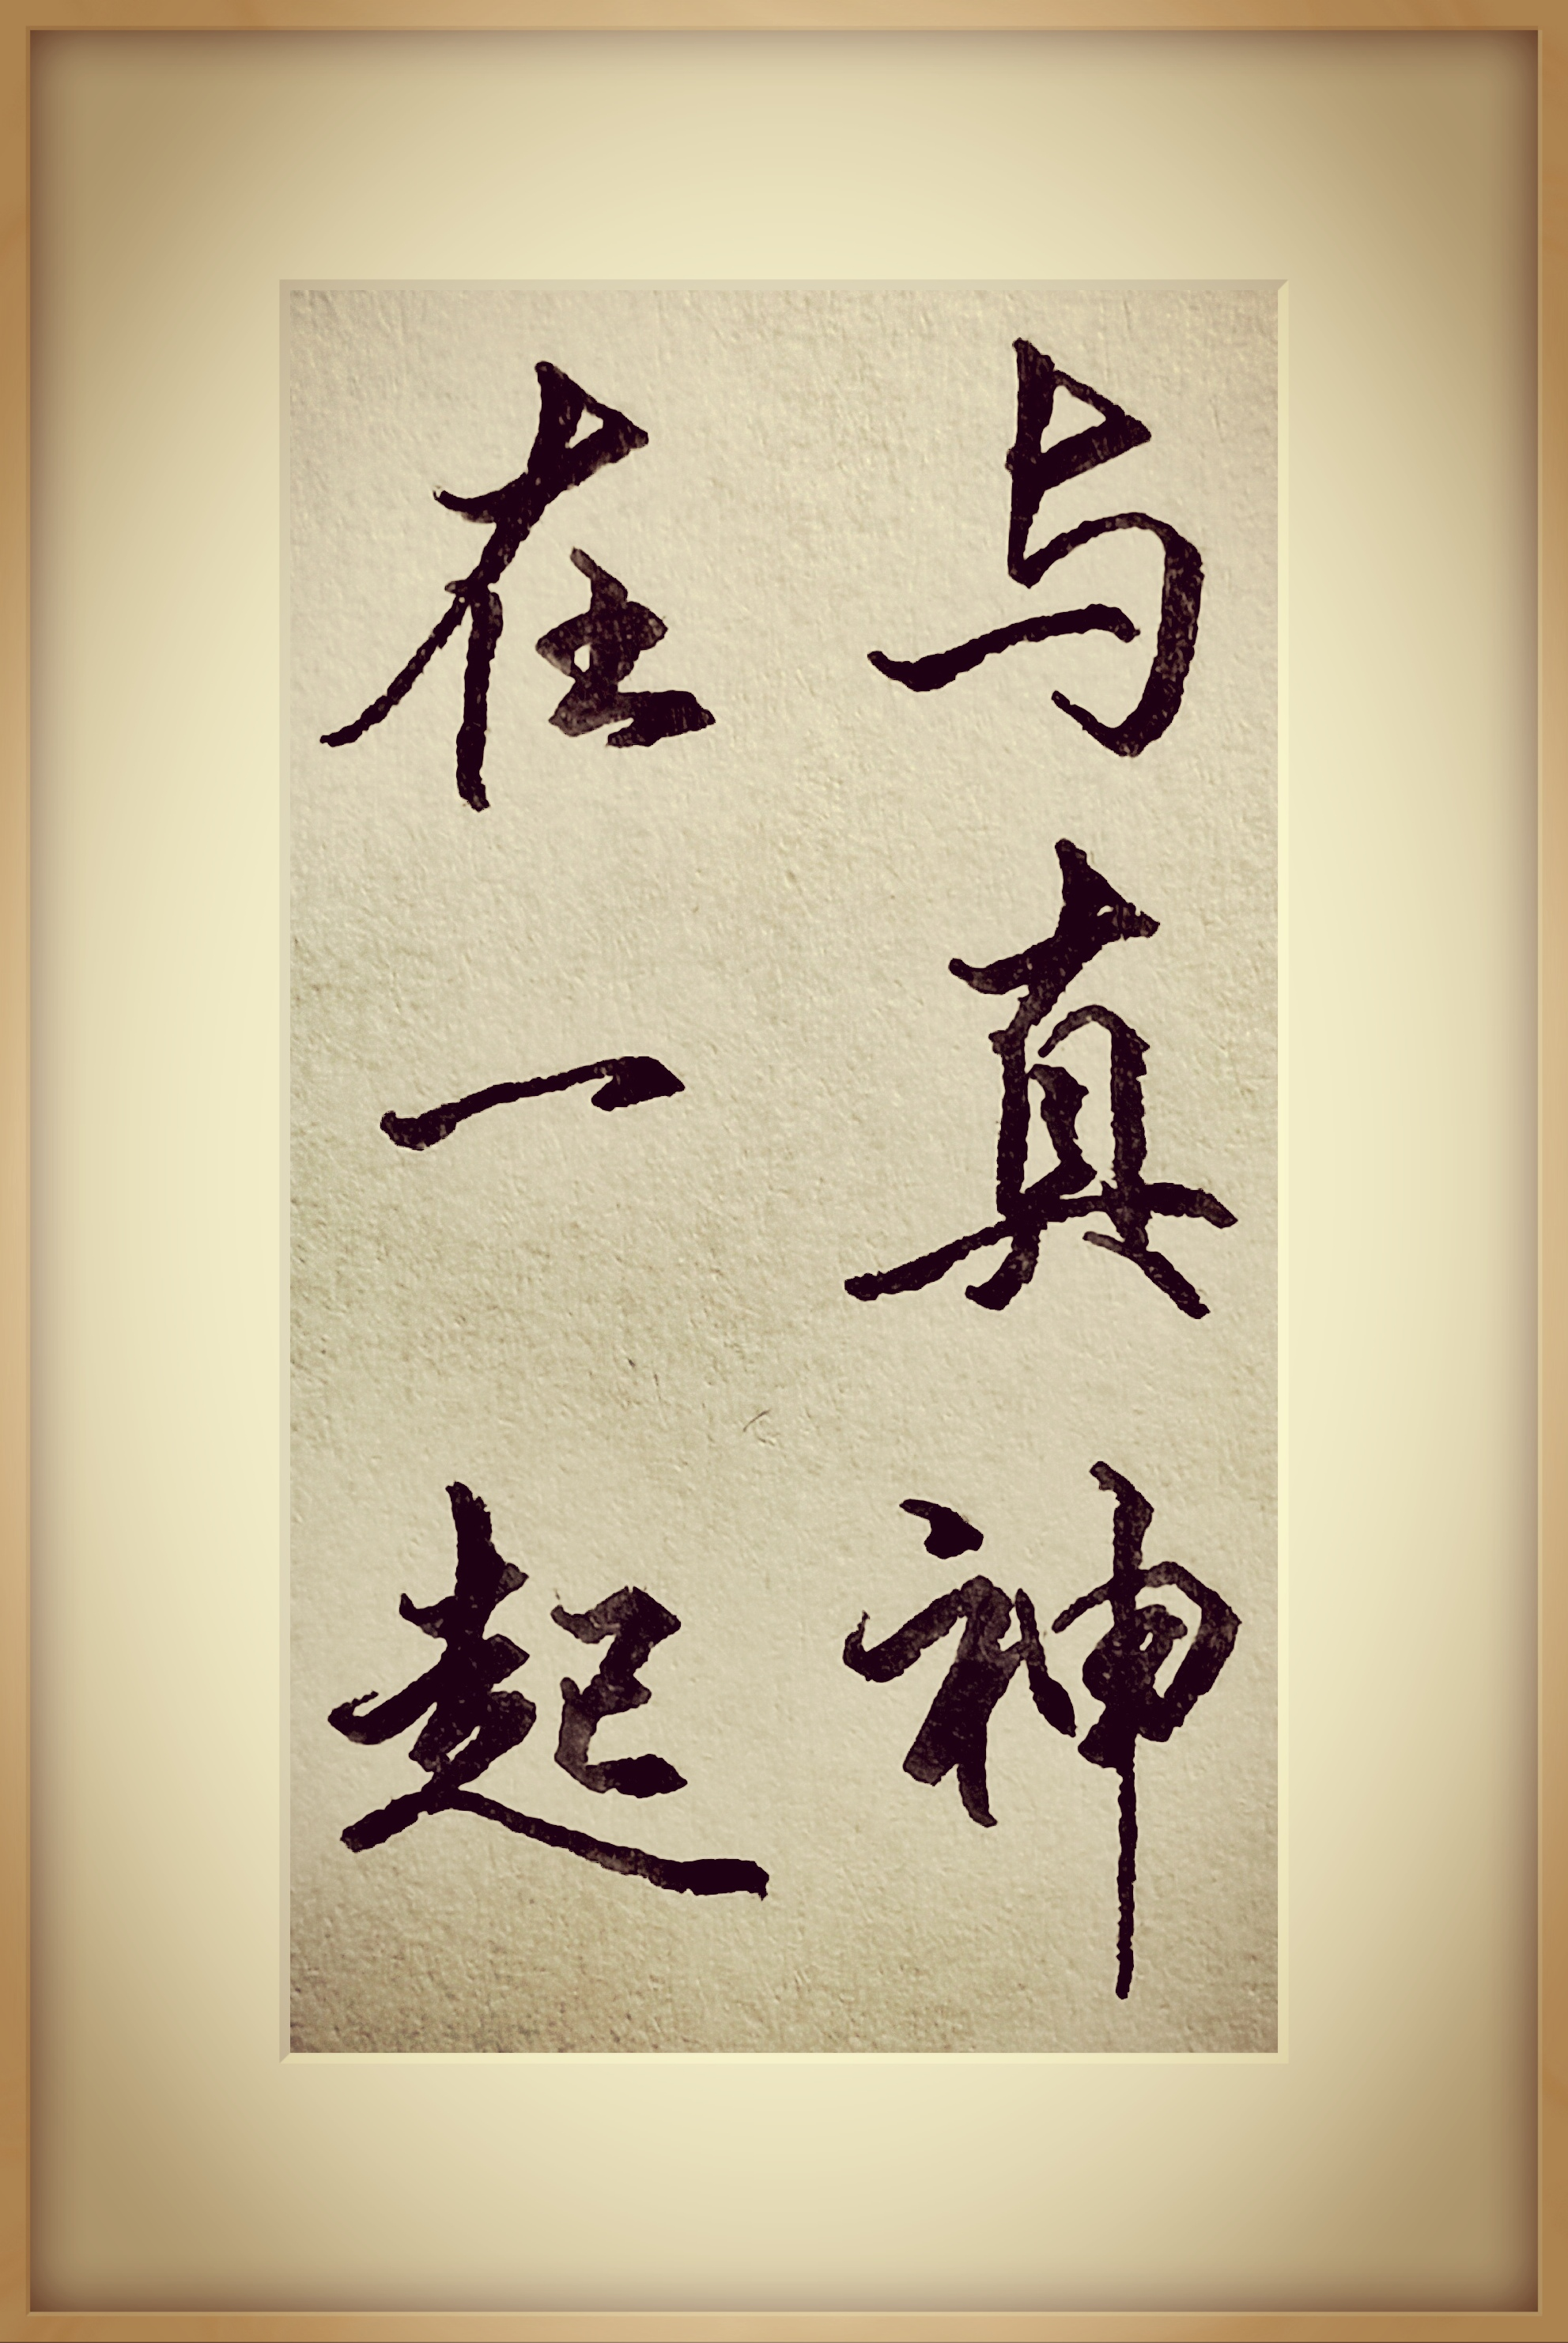 与真神
在一起